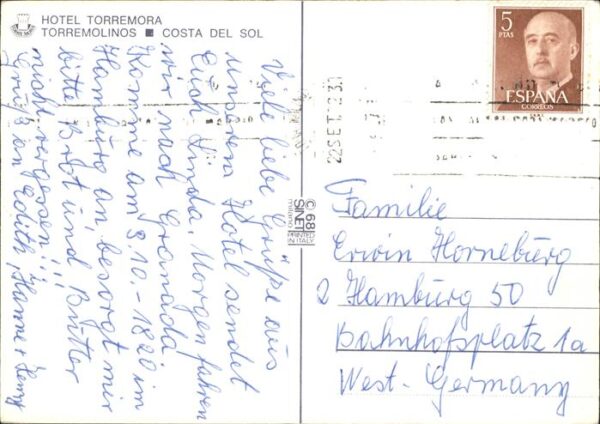 HOTEL TORREMORA
TORREMOLINOS ■ COSTA DEL SOL
Viele liebe Grüße aus
unserem Hotel sendet
Euch Linda. Morgen fahren
wir nach Granada.
Komme am 8.10.-18.20 im
Hamburg an, besorgt mir
bitte Brot und Butter
nicht vergessen!!!
Grüß an Edith, Hanne +
© 68
SINET
milano
PRINTED
IN ITALY
5
PTAS
ESPAÑA
CORREOS
22 SET. 23
Familie
Erwin Horneburg
2 Hamburg 50
Bahnhofsplatz 1a
West-Germany